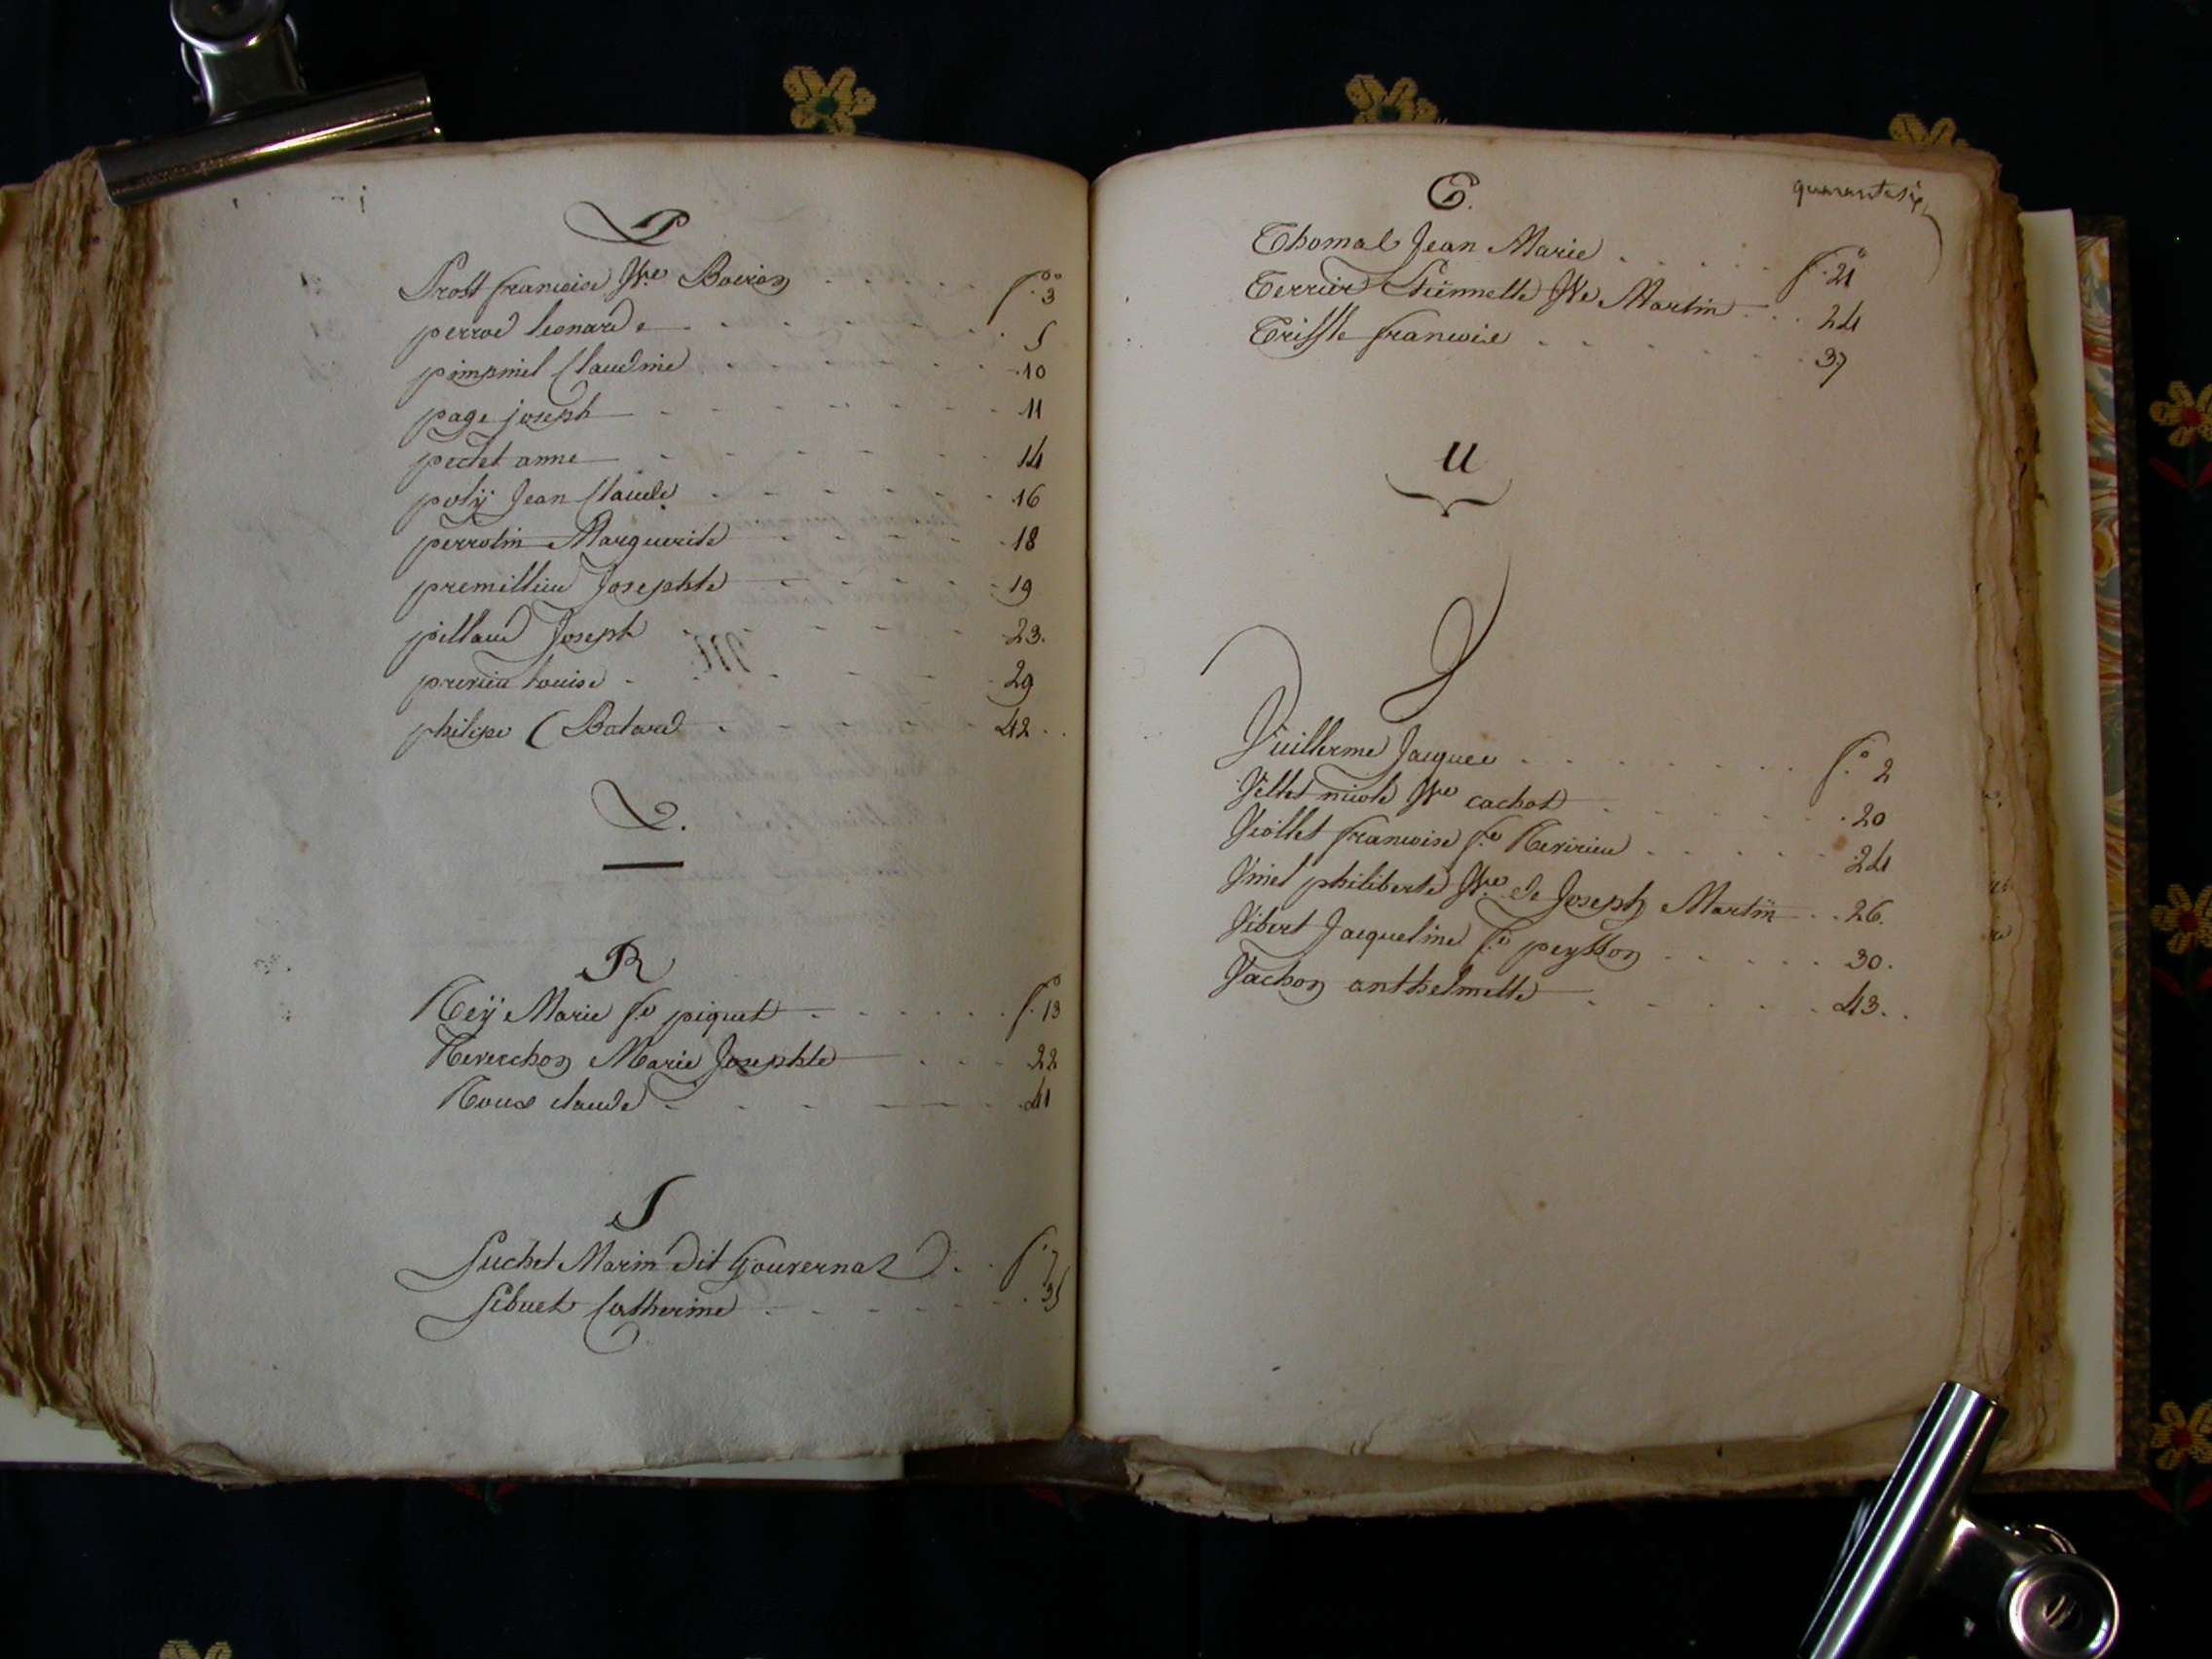 P
Prost francoise Ve. Boeiron f.° 3
perrod leonard 5
pimpmel Claudine 10
page joseph 11
pectet anne 14
polÿ Jean Claude 16
perrotin Marguerite 18
premillieu Josephte 19
pillaud Joseph 23.
louise 29
philipe (Batard 42
Q.
R
Reÿ Marie f.e piquet f.° 13
Reverchon Marie Josephte 22
Roux claude 41
S
Suchet Marin dit Gouvernat f.° 7
Sibuet Catherine 35
quarantesix
T.
Thomas Jean Marie f.° 21
Terrier Etiennette Ve Martin 24
Triffle francoise 37
U
V
Vuillerme Jacques f.° 2
Vellet nicole Ve cachod 20
Viollet francoise f.e Revirieu 24
Vinel philiberte Ve. de Joseph Martin 26.
Vibert Jacqueline f.e peysson 30.
Vachon anthelmette 43.